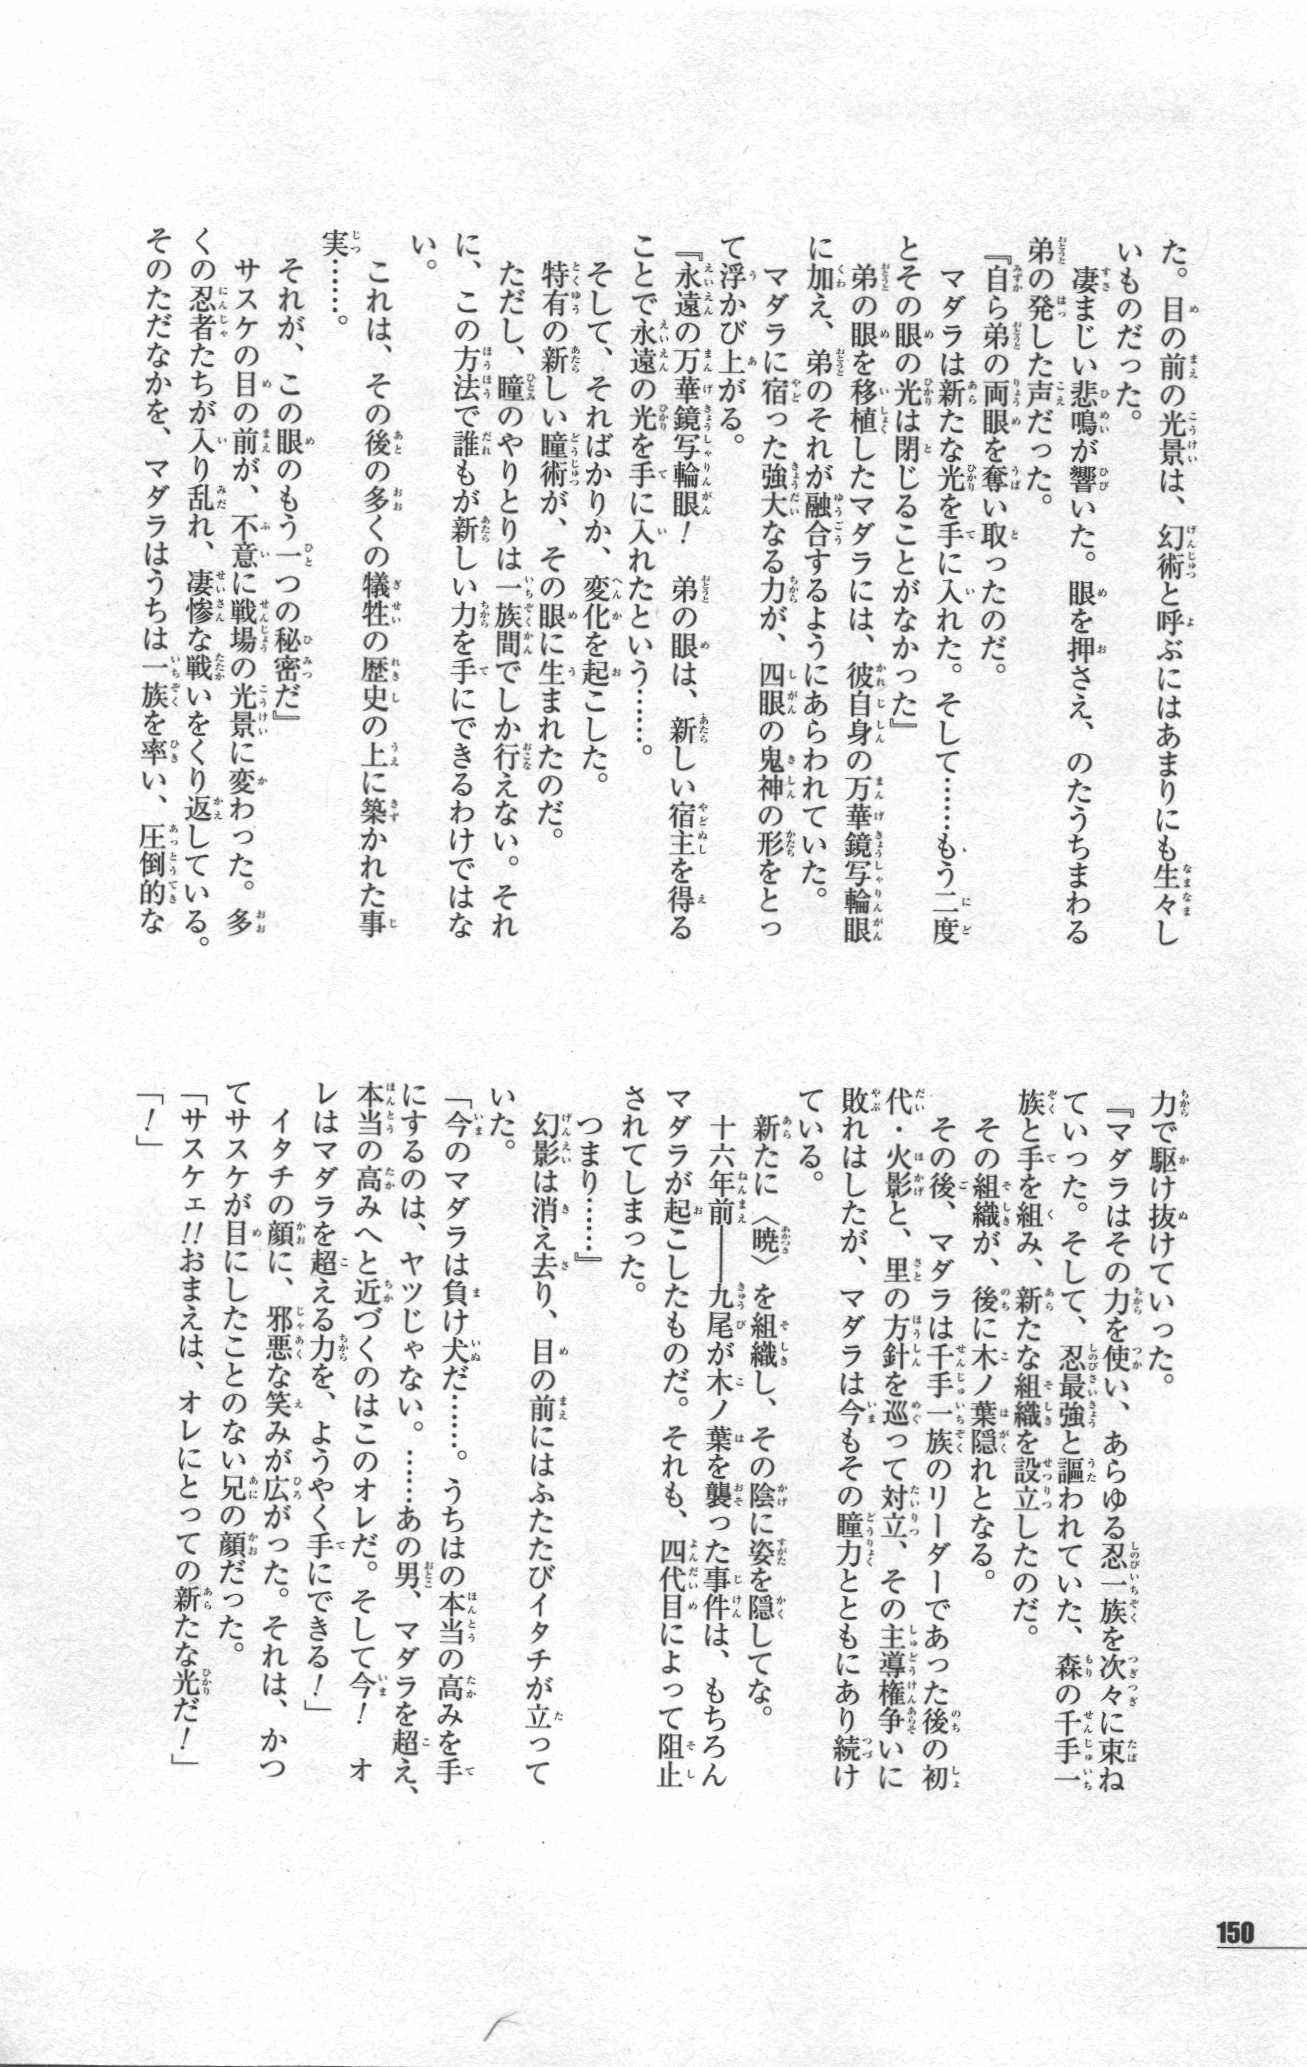 た。目の前の光景は、幻術と呼ぶにはあまりにも生々し
いものだった。
凄まじい悲鳴が響いた。眼を押さえ、のたうちまわる
弟の発した声だった。
『自ら弟の両眼を奪い取ったのだ。
マダラは新たな光を手に入れた。そして……もう二度
とその眼の光は閉じることがなかった』
弟の眼を移植したマダラには、彼自身の万華鏡写輪眼
に加え、弟のそれが融合するようにあらわれていた。
マダラに宿った強大なる力が、四眼の鬼神の形をとっ
て浮かび上がる。
『永遠の万華鏡写輪眼！　弟の眼は、新しい宿主を得る
ことで永遠の光を手に入れたという……。
そして、そればかりか、変化を起こした。
特有の新しい瞳術が、その眼に生まれたのだ。
ただし、瞳のやりとりは一族間でしか行えない。それ
に、この方法で誰もが新しい力を手にできるわけではな
い。
これは、その後の多くの犠牲の歴史の上に築かれた事
実……。
それが、この眼のもう一つの秘密だ』
サスケの目の前が、不意に戦場の光景に変わった。多
くの忍者たちが入り乱れ、凄惨な戦いをくり返している。
そのただなかを、マダラはうちは一族を率い、圧倒的な
力で駆け抜けていった。
『マダラはその力を使い、あらゆる忍一族を次々に束ね
ていった。そして、忍最強と謳われていた、森の千手一
族と手を組み、新たな組織を設立したのだ。
その組織が、後に木ノ葉隠れとなる。
その後、マダラは千手一族のリーダーであった後の初
代・火影と、里の方針を巡って対立、その主導権争いに
敗れはしたが、マダラは今もその瞳力とともにあり続け
ている。
新たに〈暁〉を組織し、その陰に姿を隠してな。
十六年前――九尾が木ノ葉を襲った事件は、もちろん
マダラが起こしたものだ。それも、四代目によって阻止
されてしまった。
つまり……』
幻影は消え去り、目の前にはふたたびイタチが立って
いた。
「今のマダラは負け犬だ……。うちはの本当の高みを手
にするのは、ヤツじゃない。……あの男、マダラを超え、
本当の高みへと近づくのはこのオレだ。そして今！　オ
レはマダラを超える力を、ようやく手にできる！」
イタチの顔に、邪悪な笑みが広がった。それは、かつ
てサスケが目にしたことのない兄の顔だった。
「サスケェ!!おまえは、オレにとっての新たな光だ！」
「！」
150